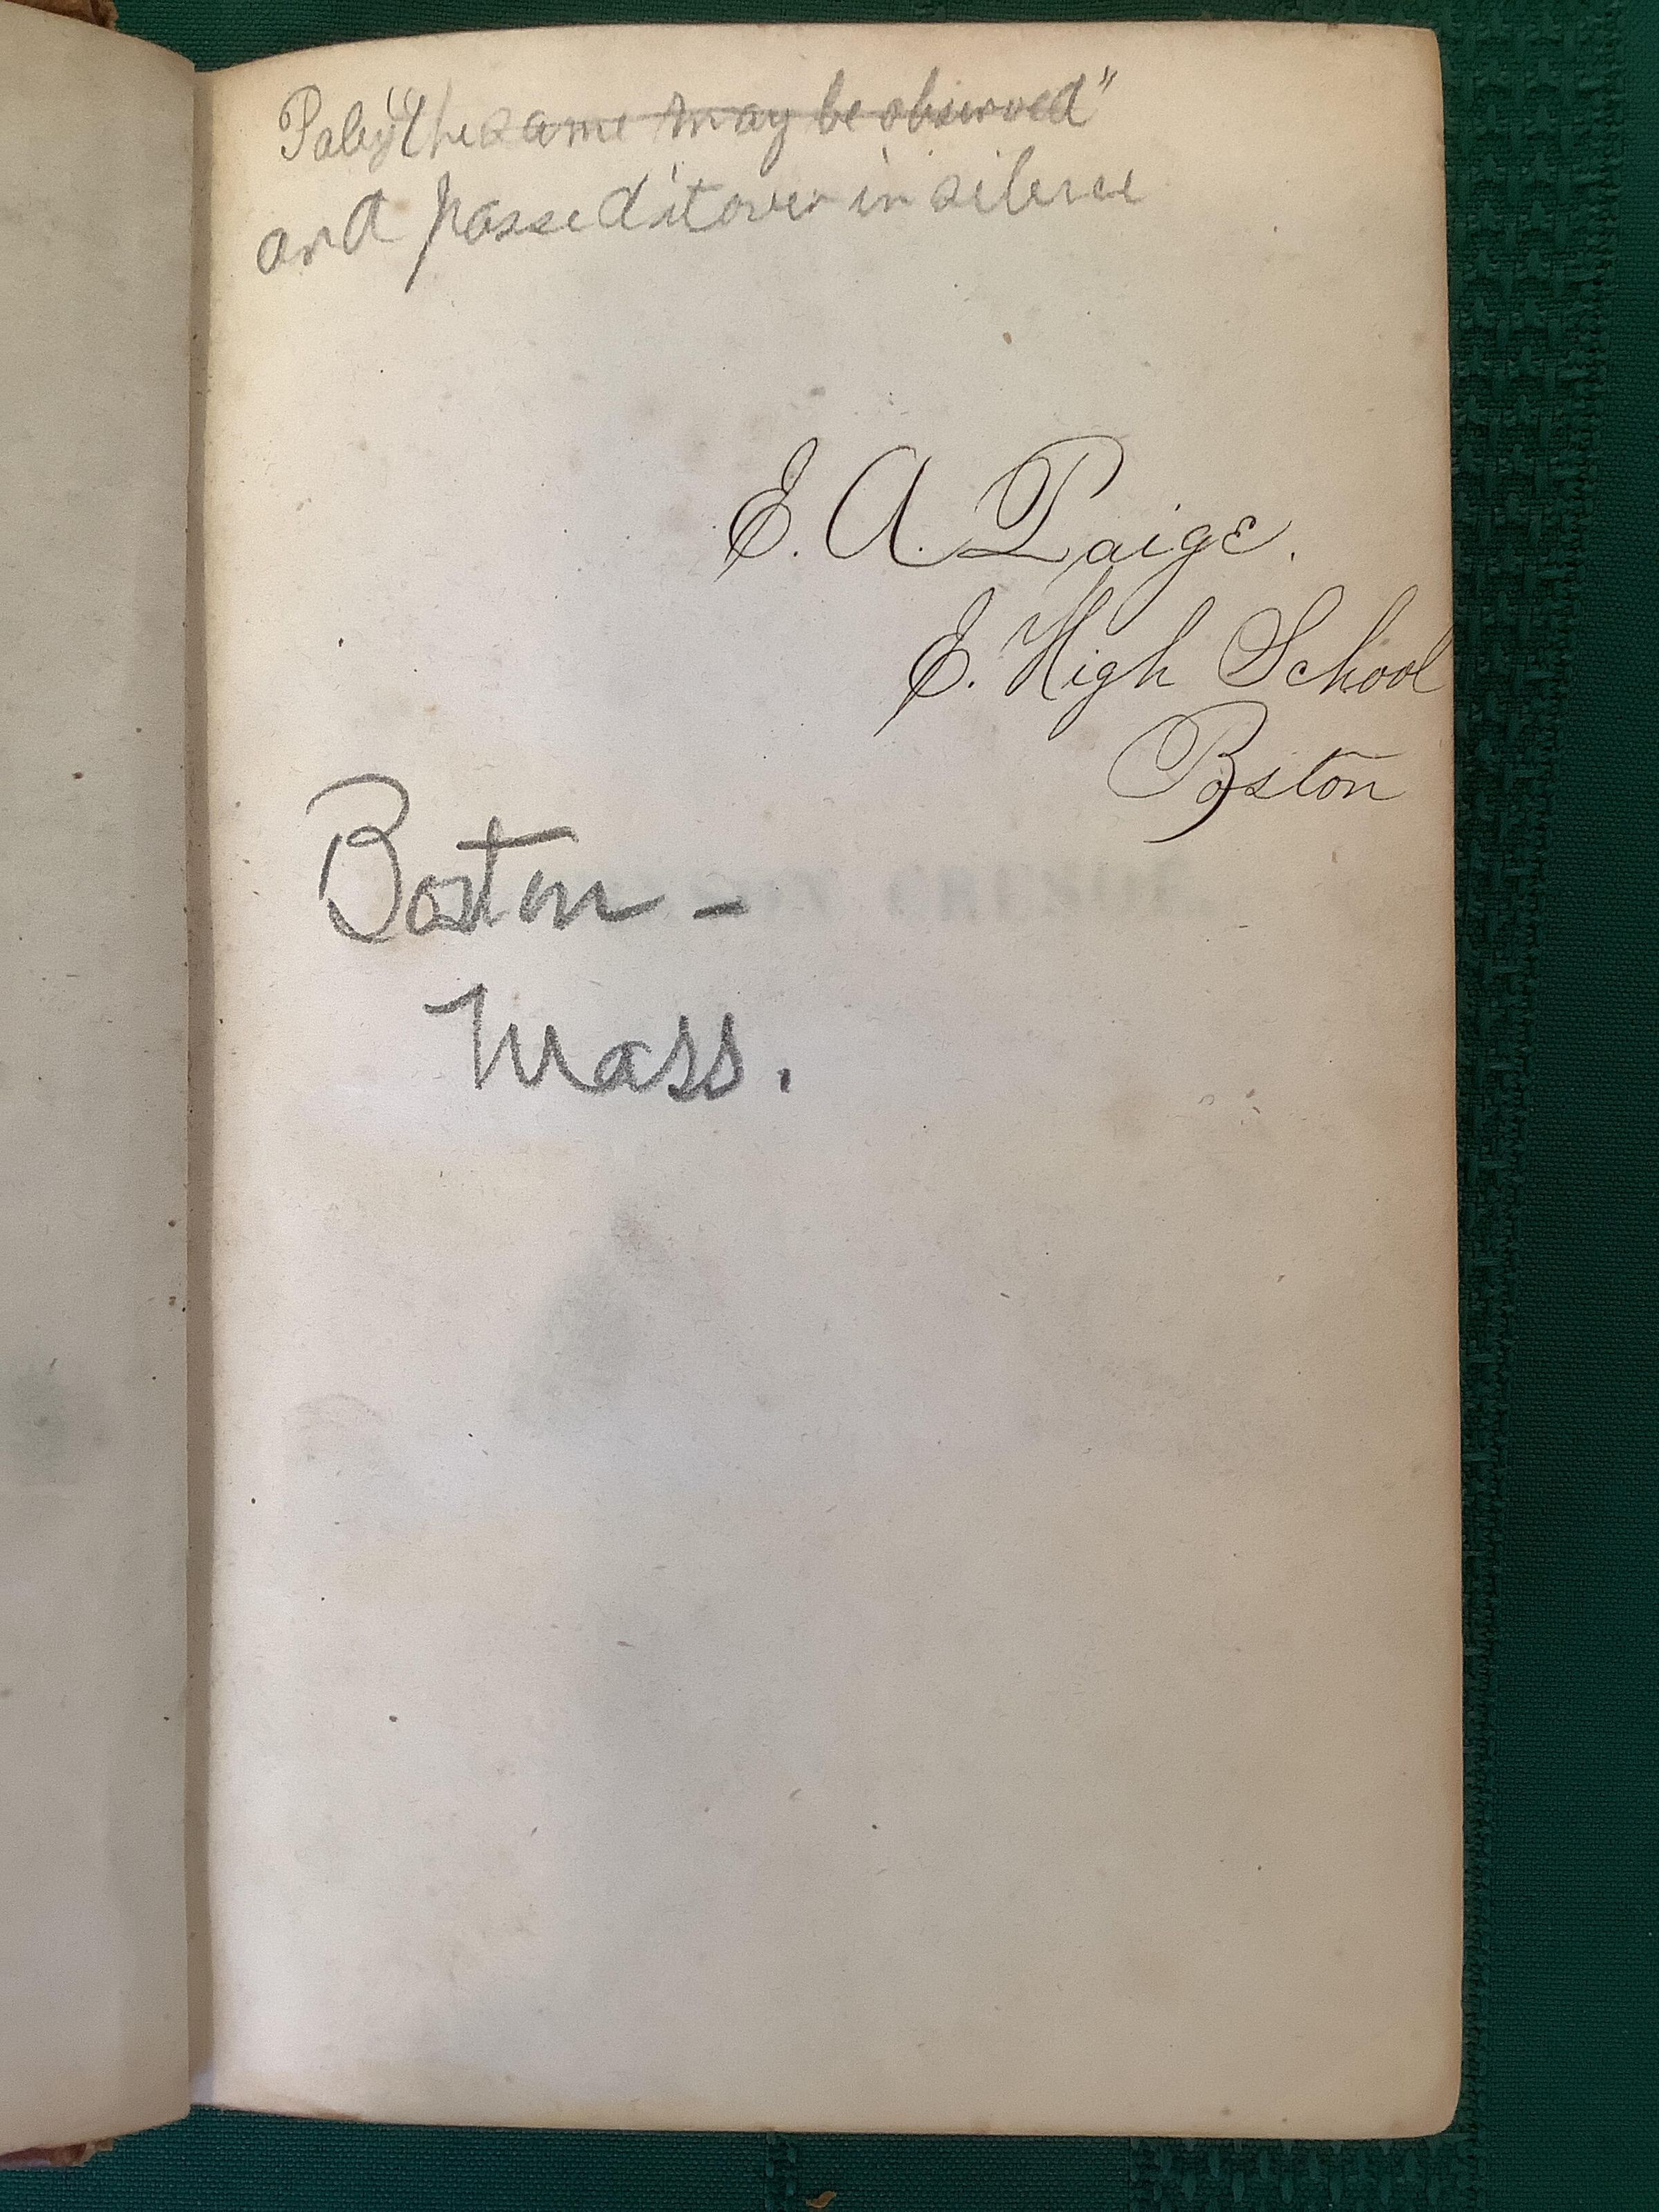 Paley "The same may be observed"
and passed it over in silence
E. A. Paige.
E. High School
Boston
Boston -
Mass.